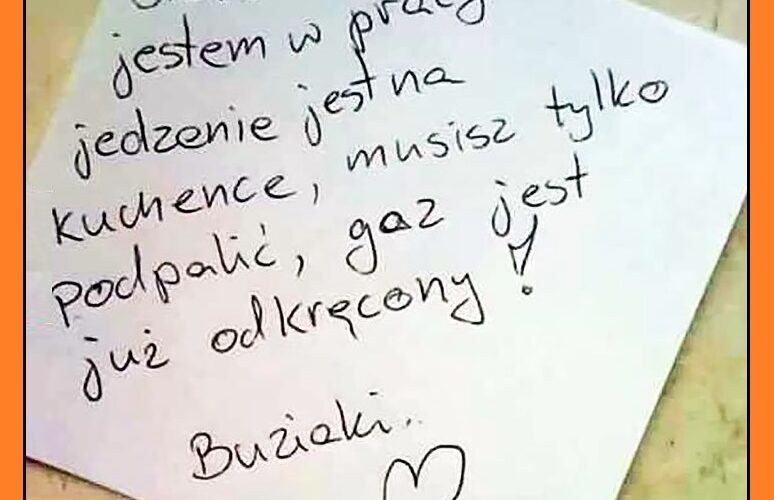 jestem w pracy
jedzenie jest na
kuchence, musisz tylko
podpalić, gaz jest
już odkręcony!
Buziaki..